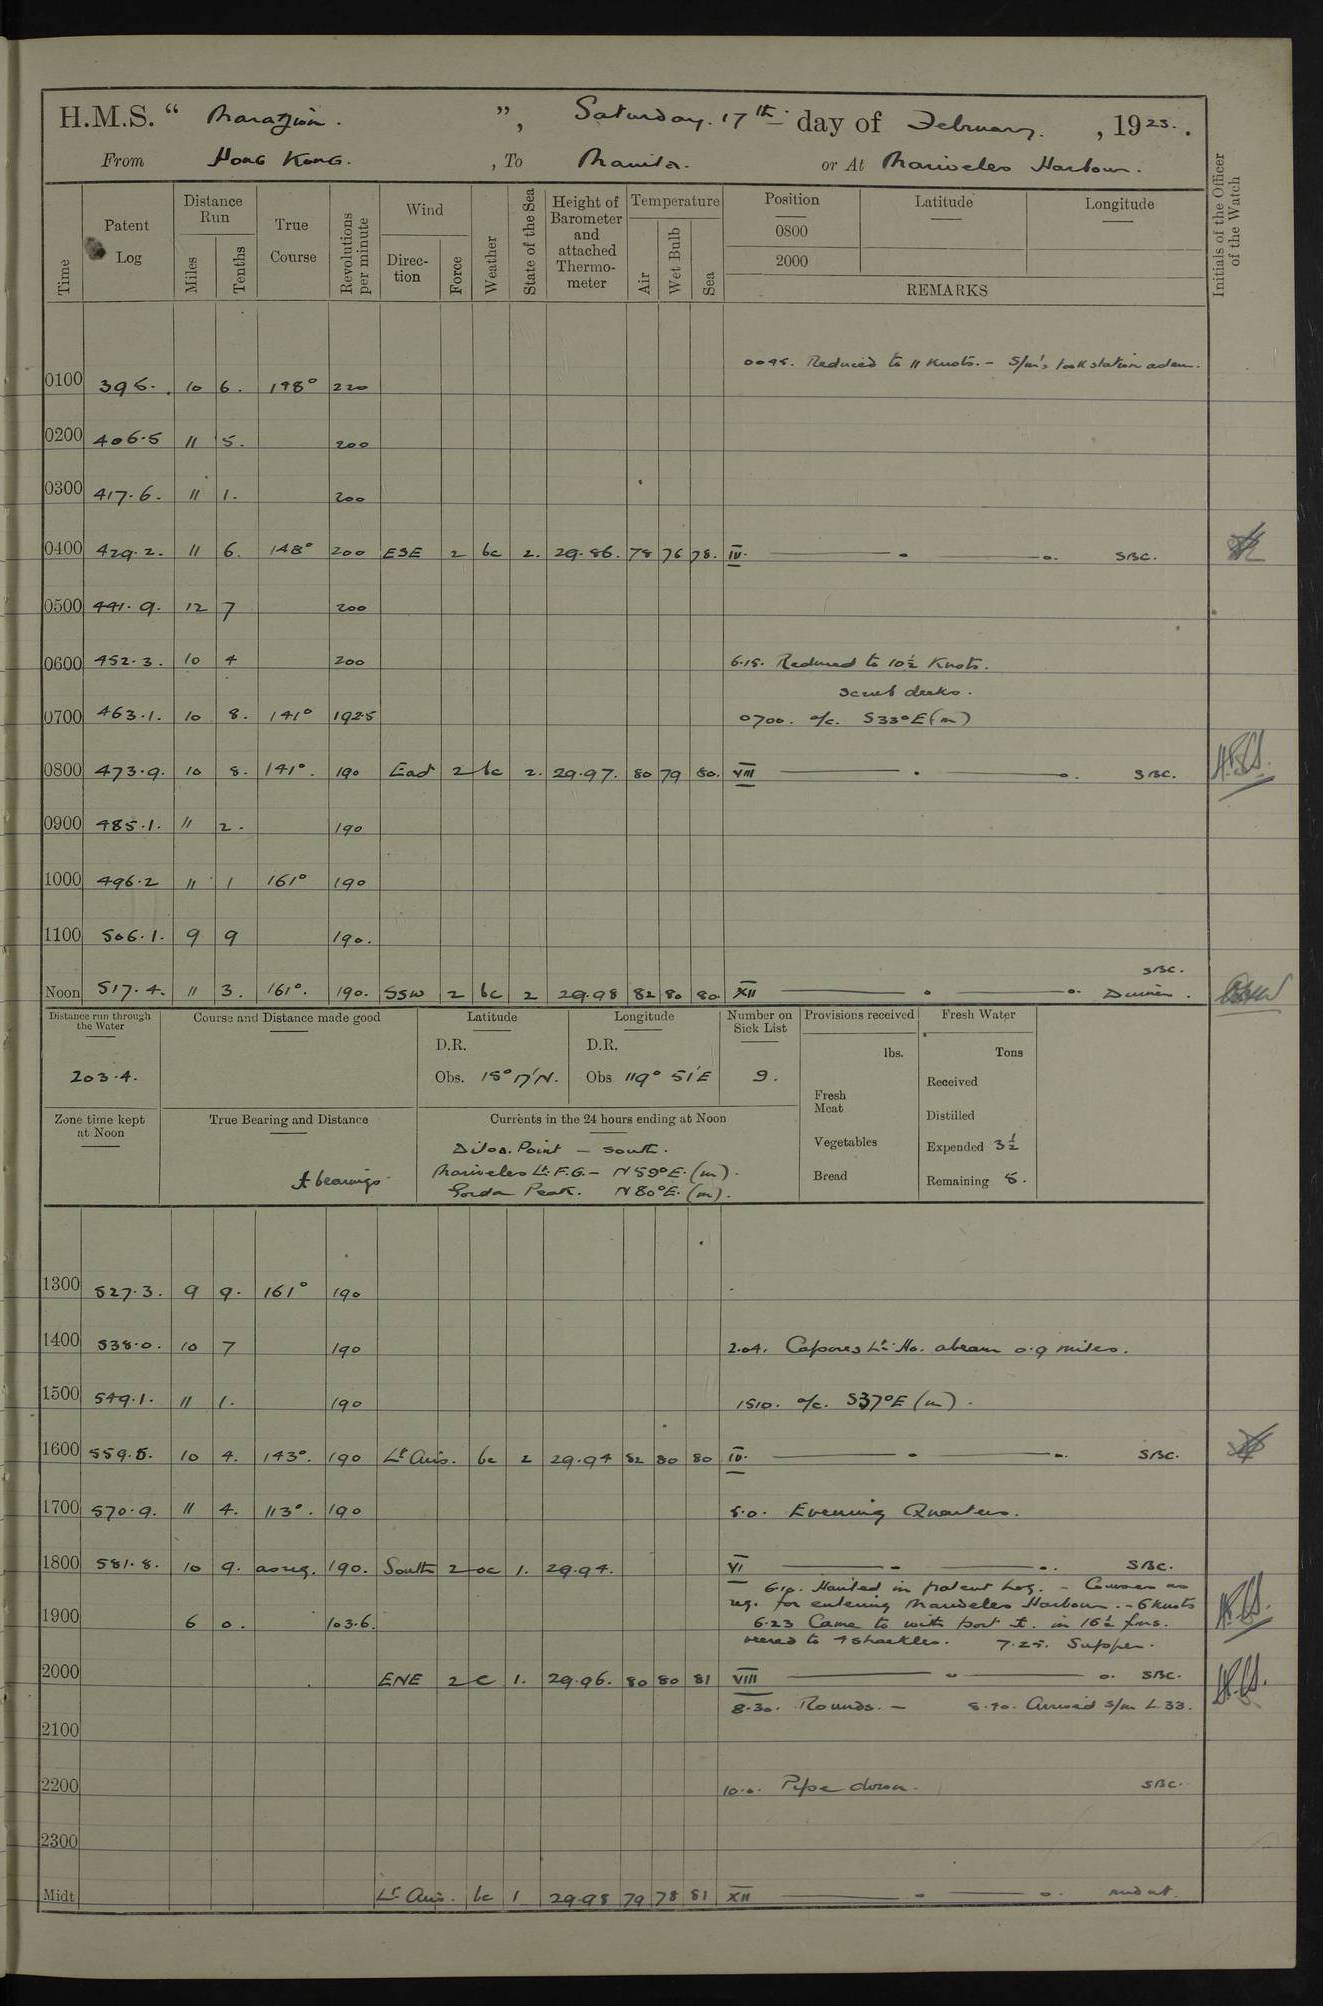 H.M.S. " Marazion. ", Saturday. 17th day of February. , 1923.
From Hong Kong. , To Manila. or At Mariveles Harbour.
Time Patent Log Distance Run Miles Tenths True Course Revolutions per minute Wind Direction Force Weather State of the Sea Height of Barometer and attached Thermometer Temperature Air Wet Bulb Sea Position Latitude Longitude Initials of the Officer of the Watch
0800
2000
REMARKS
Reduced to 11 knots. - S/m's took station
0100 396. 10 6. 198° 220
0200 406.5 11 5. 200
0300 417.6. 11 1. 200
0400 429.2. 11 6. 148° 200 ESE 2 bc 2. 29.86. 78 76 78. IV. SBC.
0500 441.9. 12 7 200
0600 452.3. 10 4 200 6.15. Reduced to 10½ Knots.
Scrub decks.
0700 463.1. 10 8. 141° 192.5 0700. a/c. S33°E (m)
0800 473.9. 10 8. 141°. 190 East 2 bc 2. 29.97. 80 79 80. VIII SBC.
0900 485.1. 11 2. 190
1000 496.2 11 1 161° 190
1100 506.1. 9 9 190.
SBC.
Noon 517.4. 11 3. 161°. 190. SSW 2 bc 2 29.98 82 80 80 XII
Distance run through the Water Course and Distance made good Latitude Longitude Number on Sick List Provisions received Fresh Water
D.R. D.R. lbs. Tons
203.4. Obs. 15° 17'N. Obs 119° 51'E 9. Received
Fresh Meat
Zone time kept at Noon True Bearing and Distance Currents in the 24 hours ending at Noon Distilled
Point - South. Vegetables Expended 3½
bearings Mariveles Lt. F.G. - N59°E. (m). Bread Remaining 5.
Gorda Peak. N80°E. (m).
1300 527.3. 9 9. 161° 190
1400 538.0. 10 7 190 2.04. Capones Lt. Ho. abeam 0.9 miles.
1500 549.1. 11 1. 190 1510. a/c. S37°E (m).
1600 559.5. 10 4. 143°. 190 Lt Airs. bc 2 29.94 82 80 80 IV. SBC.
1700 570.9. 11 4. 113°. 190 5.0. Evening Quarters.
1800 581.8. 10 9. as req. 190. South 2 oc 1. 29.94. VI SBC.
6.10. Hauled in patent Log. - Courses as
req. for entering Mariveles Harbour. - 6 knots
1900 6 0. 103.6. 6.23 Came to with port in 16½ fms.
veered to 4 shackles. 7.25. Supper.
2000 ENE 2 c 1. 29.96. 80 80 81 VIII SBC.
8.30. Rounds. - Arrived S/m L.33.
2100
2200 10.0. Pipe down. SBC.
2300
Midt Lt Airs. bc 1 29.98 79 78 81 XII